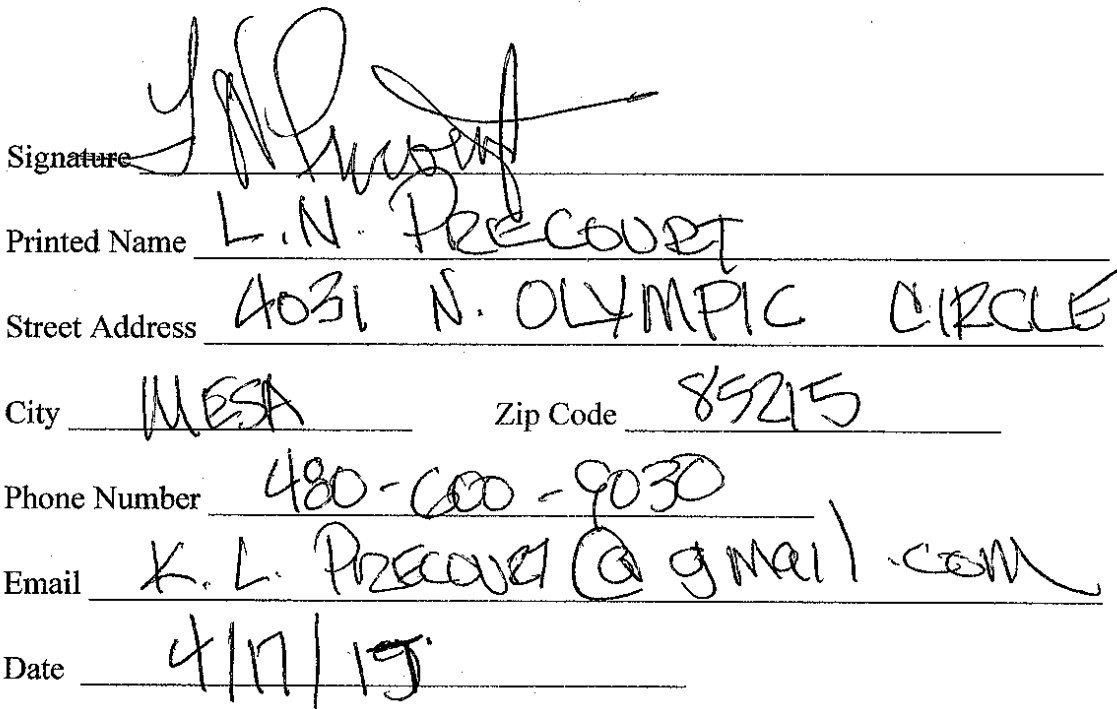 Signature L N Precourt
Printed Name L.N. PRECOURT
Street Address 4031 N. OLYMPIC CIRCLE
City MESA Zip Code 85215
Phone Number 480-600-9030
Email K.L.PRECOURT@gmail.com
Date 4/17/15